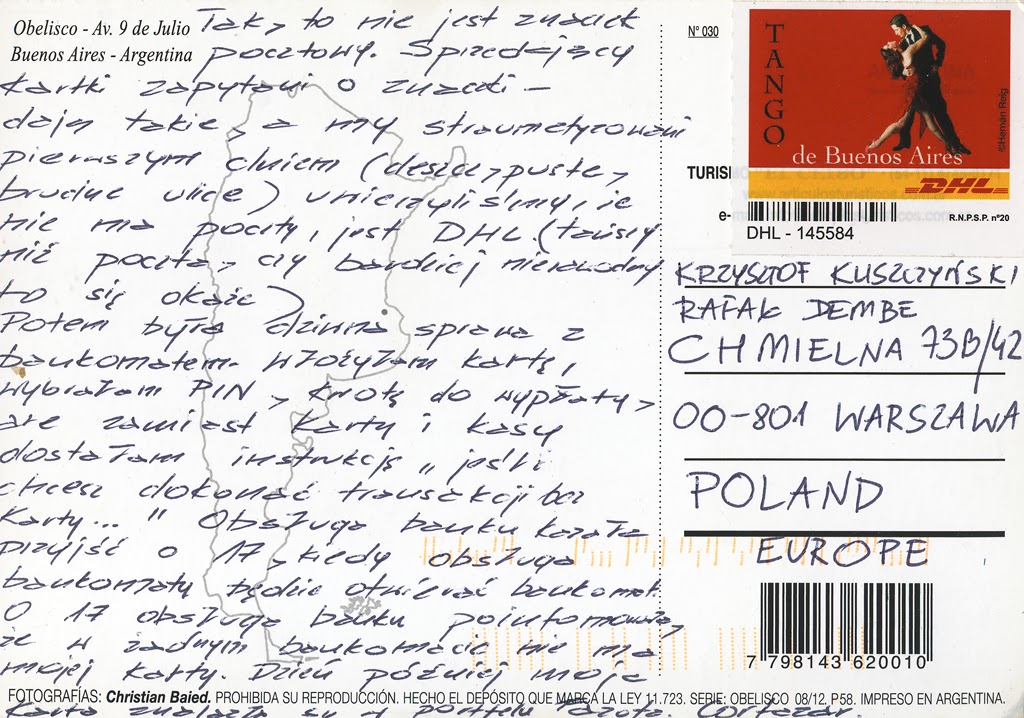 Obelisco - Av. 9 de Julio
Buenos Aires - Argentina
Tak, to nie jest znaczek
pocztowy. Sprzedający
kartki zapytani o znaczki -
dają takie, a my straumatyzowani
pierwszym dniem (deszcz, puste,
brudne ulice) uwierzyliśmy, że
nie ma poczty, jest DHL. (tańszy
niż poczta, czy bardziej niezawodny
to się okaże)
Potem była dziwna sprawa z
bankomatem. Włożyłam kartę,
wybrałam PIN, kwotę do wypłaty,
ale zamiast karty i kasy
dostałam instrukcję "jeśli
chcesz dokonać transakcji bez
karty..." Obsługa banku kazała
przyjść o 17, kiedy obsługa
bankomatu będzie otwierać bankomat.
O 17 obsługa banku poinformowała,
że w żadnym bankomacie nie ma
mojej karty. Dzień później moja
karta znalazła się w portfelu
Cortazar.
Nº 030
TANGO
de Buenos Aires
©Hernán Reig
DHL
R.N.P.S.P. nº20
DHL - 145584
TURIS
e-m
KRZYSZTOF KUSZCZYŃSKI
RAFAŁ DEMBE
CHMIELNA 73B/42
00-801 WARSZAWA
POLAND
EUROPE
7 798143 620010
FOTOGRAFÍAS: Christian Baied. PROHIBIDA SU REPRODUCCIÓN. HECHO EL DEPÓSITO QUE MARCA LA LEY 11.723. SERIE: OBELISCO 08/12. P58. IMPRESO EN ARGENTINA.